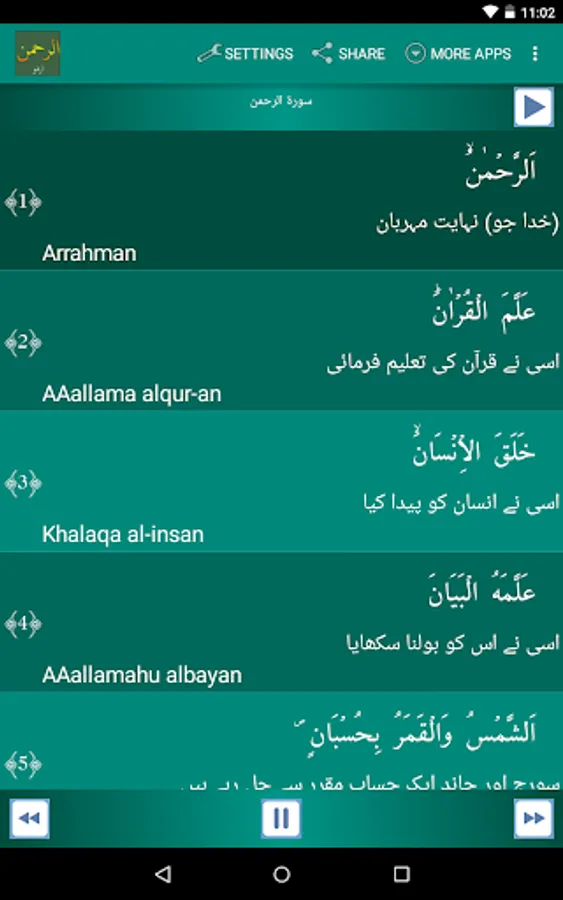 11:02
الرحمن
اردو
SETTINGS
SHARE
MORE APPS
سورۃ الرحمن
اَلرَّحۡمٰنُۙ
﴿1﴾
(خدا جو) نہایت مہربان
Arrahman
عَلَّمَ الۡقُرۡاٰنَؕ
﴿2﴾
اسی نے قرآن کی تعلیم فرمائی
AAallama alqur-an
خَلَقَ الۡاِنۡسَانَۙ
﴿3﴾
اسی نے انسان کو پیدا کیا
Khalaqa al-insan
عَلَّمَهُ الۡبَيَانَ
﴿4﴾
اسی نے اس کو بولنا سکھایا
AAallamahu albayan
اَلشَّمۡسُ وَالۡقَمَرُ بِحُسۡبَانٍ
﴿5﴾
سورج اور چاند ایک حساب مقرر سے چل رہے ہیں